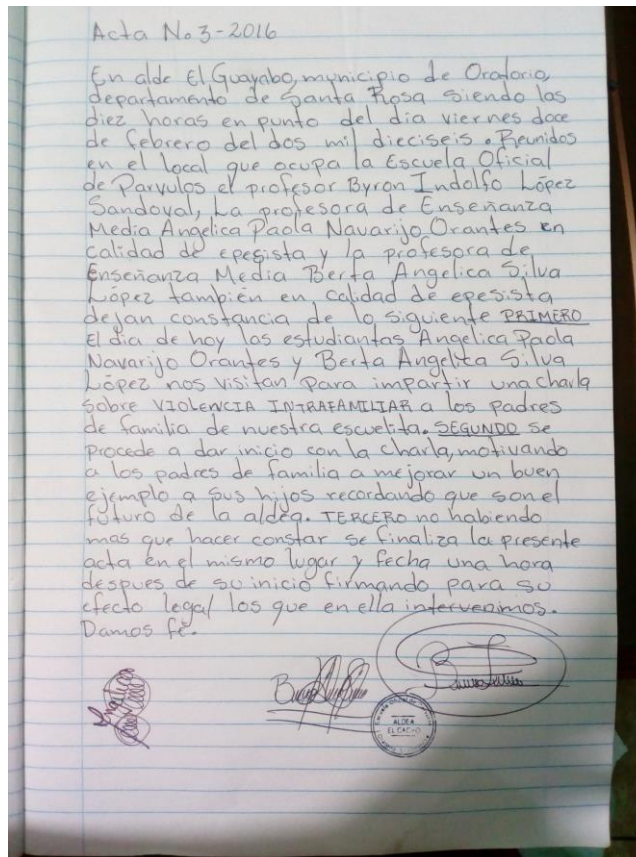 Acta No. 3-2016
En alde El Guayabo, municipio de Oratorio,
departamento de Santa Rosa siendo las
diez horas en punto del dia viernes doce
de febrero del dos mil dieciseis. Reunidos
en el local que ocupa la Escuela Oficial
de Parvulos el profesor Byron Indolfo López
Sandoval, La profesora de Enseñanza
Media Angelica Paola Navarijo Orantes en
calidad de epesista y la profesora de
Enseñanza Media Berta Angelica Silva
López también en calidad de epesista
dejan constancia de lo siguiente PRIMERO
El dia de hoy las estudiantas Angelica Paola
Navarijo Orantes y Berta Angelica Silva
López nos visitan para impartir una charla
sobre VIOLENCIA INTRAFAMILIAR a los padres
de familia de nuestra escuelita. SEGUNDO se
procede a dar inicio con la charla, motivando
a los padres de familia a mejorar un buen
ejemplo a sus hijos recordando que son el
futuro de la aldea. TERCERO no habiendo
mas que hacer constar se finaliza la presente
acta en el mismo lugar y fecha una hora
despues de su inicio firmando para su
efecto legal los que en ella intervenimos.
Damos fé.
ALDEA